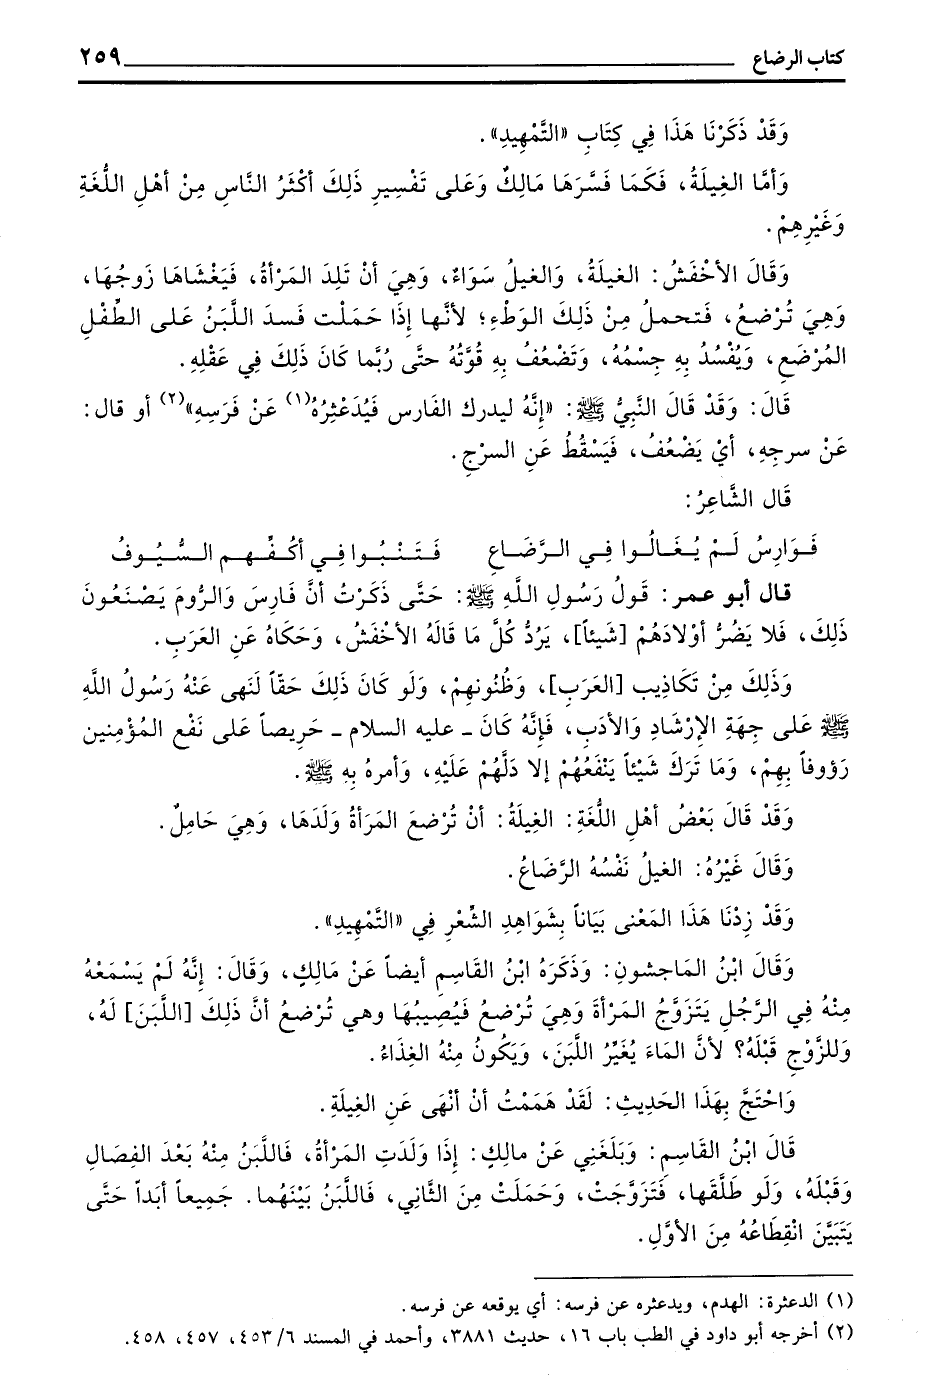 كتاب الرضاع ٢٥٩
وَقَدْ ذَكَرْنَا هَذَا فِي كِتَابِ «التَّمْهِيدِ».
وَأمَّا الغِيلَةُ، فَكَمَا فَسَّرَهَا مَالِكٌ وَعَلى تَفْسِيرِ ذَلِكَ أكْثَرُ النَّاسِ مِنْ أهْلِ اللُّغَةِ
وَغَيْرِهِمْ.
وَقَالَ الأخْفَشُ: الغيلَةُ، وَالغيلُ سَوَاءٌ، وَهِيَ أنْ تَلِدَ المَرْأةُ، فَيَغْشَاهَا زَوجُهَا،
وَهِيَ تُرْضعُ، فَتحملُ مِنْ ذَلِكَ الوَطْءِ؛ لأنَّها إذَا حَمَلْت فَسدَ اللَّبَنُ عَلى الطِّفْلِ
المُرْضَعِ، وَيُفْسُدُ بِهِ جِسْمُهُ، وَتَضْعُفُ بِهِ قُوَّتُهُ حتَّى رُبَّما كَانَ ذَلِكَ فِي عَقْلِهِ.
قَالَ: وَقَدْ قَالَ النَّبِيُّ ﷺ: «إنَّهُ ليدرك الفَارس فَيُدَعْثِرُهُ(١) عَنْ فَرَسِهِ»(٢) أو قال:
عَنْ سرجِهِ، أيْ يَضْعُفُ، فَيَسْقُطُ عَنِ السرْجِ.
قَال الشَّاعِرُ:
فَـوَارِسُ لَـمْ يُـغَـالُـوا فِـي الـرَّضَـاعِ فَـتَـنْـبُـوا فـِي أكُـفِّـهـم الـسُّـيُـوفُ
قال أبو عمر: قَولُ رَسُولِ اللَّهِ ﷺ: حَتَّى ذَكَرْتُ أنَّ فَارِسَ وَالرُّومَ يَصْنَعُونَ
ذَلِكَ، فَلا يَضُرُّ أوْلادَهُمْ [شَيئاً]، يَرُدُّ كُلَّ مَا قَالَهُ الأخْفَشُ، وَحَكَاهُ عَنِ العَرَبِ.
وَذَلِكَ مِنْ تَكَاذِيبِ [العَرَبِ]، وَظُنُونِهِمْ، وَلَو كَانَ ذَلِكَ حَقّاً لَنَهى عَنْهُ رَسُولُ اللَّهِ
ﷺ عَلى جِهَةِ الإرْشَادِ وَالأدَبِ، فَإنَّهُ كَانَ ـ عليه السلام ـ حَرِيصاً عَلى نَفْعِ المُؤْمِنين
رَؤُوفاً بِهِمْ، وَمَا تَرَكَ شَيْئاً يَنْفَعُهُمْ إلا دَلَّهُمْ عَلَيْهِ، وَأمرهُ بِهِ ﷺ.
وَقَدْ قَالَ بَعْضُ أهْلِ اللُّغَةِ: الغِيلَةُ: أنْ تُرْضعَ المَرَأةُ وَلَدَهَا، وَهِيَ حَامِلٌ.
وَقَالَ غَيْرُهُ: الغيلُ نَفْسُهُ الرَّضَاعُ.
وَقَدْ زِدْنَا هَذَا المَعْنى بَيَاناً بِشَوَاهِدِ الشِّعْرِ فِي «التَّمْهِيدِ».
وَقَالَ ابْنُ المَاجشونِ: وَذَكَرَهُ ابْنُ القَاسِمِ أيضاً عَنْ مَالِكٍ، وَقَالَ: إنَّهُ لَمْ يَسْمَعْهُ
مِنْهُ فِي الرَّجُلِ يَتَزَوَّجُ المَرْأةَ وَهِيَ تُرْضعُ فَيُصِيبُهَا وهي تُرْضعُ أنَّ ذَلِكَ [اللَّبَنَ] لَهُ،
وَللزَّوْجِ قَبْلَهُ؟ لأنَّ المَاءَ يُغَيِّرُ اللَّبَنَ، وَيَكُونُ مِنْهُ الغِذَاءُ.
وَاحْتَجَّ بِهَذَا الحَدِيثِ: لَقَدْ هَمَمْتُ أنْ أنْهَى عَنِ الغِيلَةِ.
قَالَ ابْنُ القَاسِمِ: وَبَلَغَنِي عَنْ مالِكٍ: إذَا وَلَدَتِ المَرْأةُ، فَاللَّبَنُ مِنْهُ بَعْدَ الفِصَالِ
وَقَبْلَهُ، وَلَو طَلَّقَها، فَتَزَوَّجَتْ، وَحَمَلَتْ مِنَ الثَّانِي، فَاللَّبَنُ بَيْنَهُما. جَمِيعاً أبَداً حَتَّى
يَتَبَيَّنَ انْقِطَاعُهُ مِنَ الأوَّلِ.
(١) الدعثرة: الهدم، ويدعثره عن فرسه: أي يوقعه عن فرسه.
(٢) أخرجه أبو داود في الطب باب ١٦، حديث ٣٨٨١، وأحمد في المسند ٤٥٣/٦، ٤٥٧، ٤٥٨.